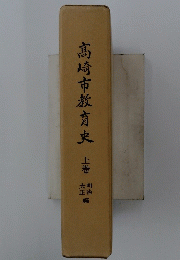 高崎市教育史
上巻
明治
大正
編